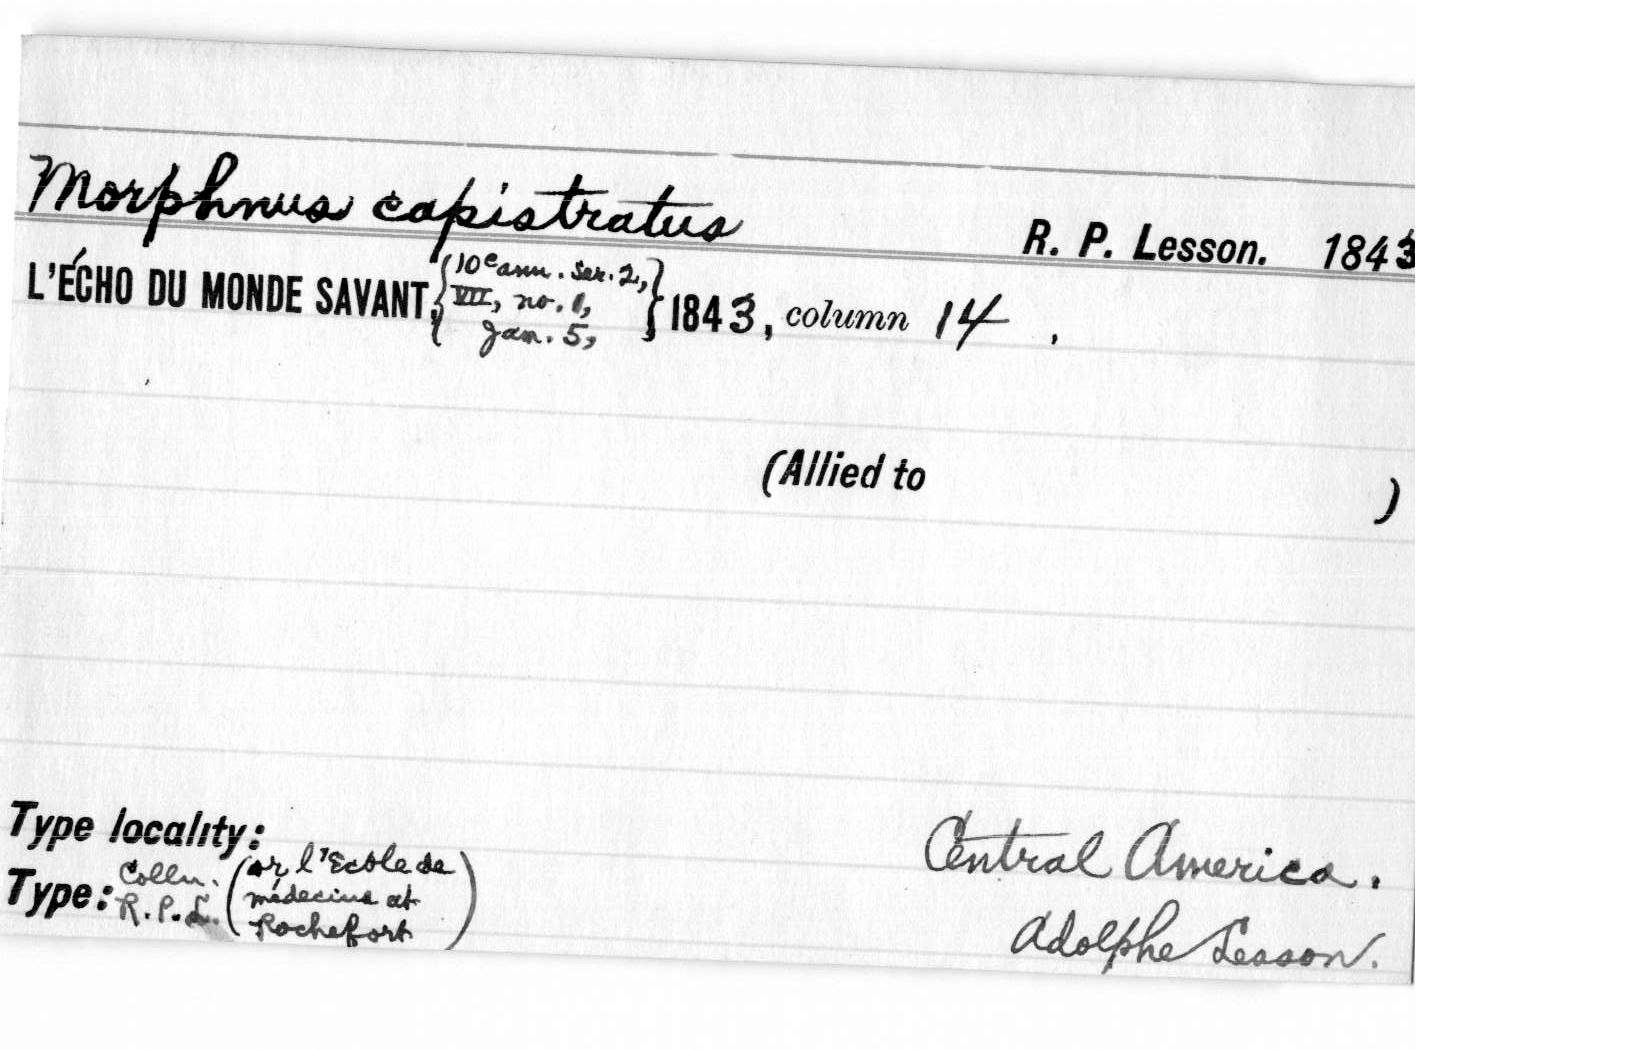 Morphnus capistratus R. P. Lesson. 1843
L'ÉCHO DU MONDE SAVANT, {10e ann. Ser. 2, VII, no. 1, Jan. 5,} 1843, column 14 .
(Allied to )
Type locality: Central America.
Type: Colln. R.P.L. (or l'Ecole de médecine at Rochefort) Adolphe Lesson.